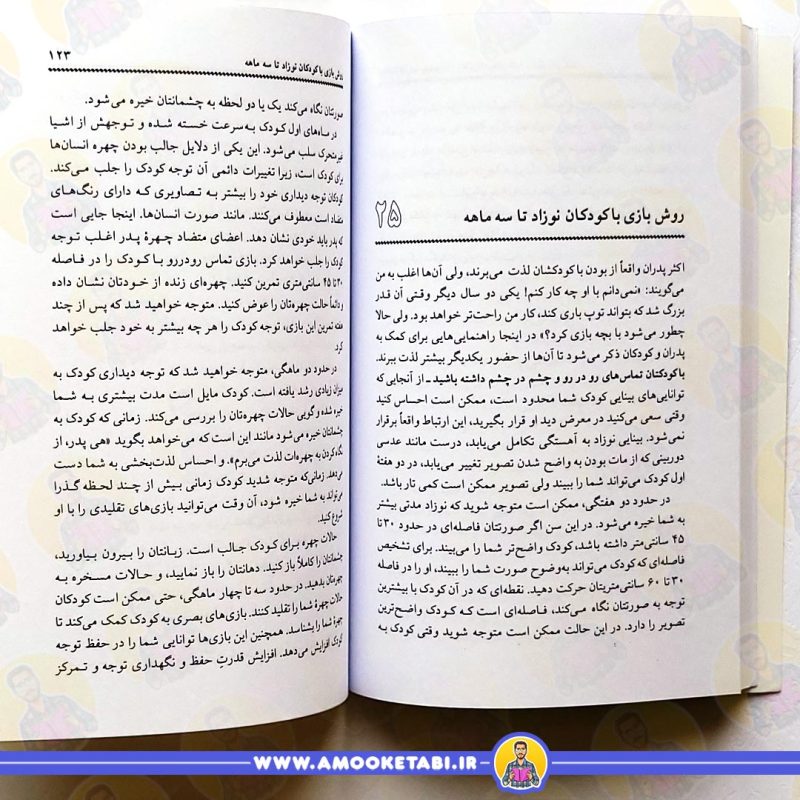 ۲۵
روش بازی با کودکان نوزاد تا سه ماهه
اکثر پدران واقعاً از بودن با کودکشان لذت می‌برند، ولی آن‌ها اغلب به من
می‌گویند: «نمی‌دانم با او چه کار کنم! یکی دو سال دیگر وقتی آن قدر
بزرگ شد که بتواند توپ بازی کند، کار من راحت‌تر خواهد بود. ولی حالا
چطور می‌شود با بچه بازی کرد؟» در اینجا راهنمایی‌هایی برای کمک به
پدران و کودکان ذکر می‌شود تا آن‌ها از حضور یکدیگر بیشتر لذت ببرند.
با کودکتان تماس‌های رو در رو و چشم در چشم داشته باشید ـ از آنجایی که
توانایی‌های بینایی کودک شما محدود است، ممکن است احساس کنید
وقتی سعی می‌کنید در معرض دید او قرار بگیرید، این ارتباط واقعاً برقرار
نمی‌شود. بینایی نوزاد به آهستگی تکامل می‌یابد، درست مانند عدسی
دوربینی که از مات بودن به واضح شدن تصویر تغییر می‌یابد، در دو هفتهٔ
اول کودک می‌تواند شما را ببیند ولی تصویر ممکن است کمی تار باشد.
در حدود دو هفتگی، ممکن است متوجه شوید که نوزاد مدتی بیشتر
به شما خیره می‌شود. در این سن اگر صورتتان فاصله‌ای در حدود ۳۰ تا
۴۵ سانتی‌متر داشته باشد، کودک واضح‌تر شما را می‌بیند. برای تشخیص
فاصله‌ای که کودک می‌تواند به‌وضوح صورت شما را ببیند، او را در فاصله
۳۰ تا ۶۰ سانتی‌متریتان حرکت دهید. نقطه‌ای که در آن کودک با بیشترین
توجه به صورتتان نگاه می‌کند، فاصله‌ای است که کودک واضح‌ترین
تصویر را دارد. در این حالت ممکن است متوجه شوید وقتی کودک به
روش بازی با کودکان نوزاد تا سه ماهه ۱۲۳
صورتتان نگاه می‌کند یک یا دو لحظه به چشمانتان خیره می‌شود.
در ماه‌های اول کودک به‌سرعت خسته شده و توجهش از اشیا
غیرمتحرک سلب می‌شود. این یکی از دلایل جالب بودن چهره انسان‌ها
برای کودک است، زیرا تغییرات دائمی آن توجه کودک را جلب می‌کند.
کودکان توجه دیداری خود را بیشتر به تصاویری که دارای رنگ‌های
متضاد است معطوف می‌کنند. مانند صورت انسان‌ها. اینجا جایی است
که پدر باید خودی نشان دهد. اعضای متضاد چهرهٔ پدر اغلب توجه
کودک را جلب خواهد کرد. بازی تماس رودررو با کودک را در فاصله
۳۰ تا ۴۵ سانتی‌متری تمرین کنید. چهره‌ای زنده از خودتان نشان داده
و دائماً حالت چهره‌تان را عوض کنید. متوجه خواهید شد که پس از چند
هفته تمرین این بازی، توجه کودک را هر چه بیشتر به خود جلب خواهد
کرد.
در حدود دو ماهگی، متوجه خواهید شد که توجه دیداری کودک به
میزان زیادی رشد یافته است. کودک مایل است مدت بیشتری به شما
خیره شده و گویی حالات چهره‌تان را بررسی می‌کند. زمانی که کودک به
چشمانتان خیره می‌شود مانند این است که می‌خواهد بگوید «هی پدر، از
نگاه کردن به چهره‌ات لذت می‌برم». و احساس لذت‌بخشی به شما دست
می‌دهد. زمانی‌که متوجه شدید کودک زمانی بیش از چند لحظه گذرا
می‌تواند به شما خیره شود، آن وقت می‌توانید بازی‌های تقلیدی را با او
شروع کنید.
حالات چهره برای کودک جالب است. زبانتان را بیرون بیاورید،
چشمانتان را کاملاً باز کنید. دهانتان را باز نمایید، و حالات مسخره به
چهره‌تان بدهید. در حدود سه تا چهار ماهگی، حتی ممکن است کودکان
حالات چهرهٔ شما را تقلید کنند. بازی‌های بصری به کودک کمک می‌کند تا
چهرهٔ شما را بشناسد. همچنین این بازی‌ها توانایی شما را در حفظ توجه
کودک افزایش می‌دهد. افزایش قدرتِ حفظ و نگهداری توجه و تمرکز
WWW.AMOOKETABI.IR